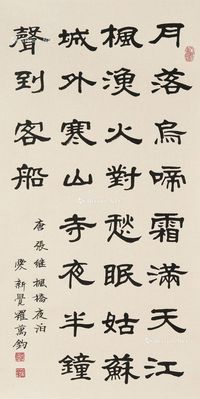 月落烏啼霜滿天江
楓漁火對愁眠姑蘇
城外寒山寺夜半鐘
聲到客船
唐張継楓橋夜泊
新覺羅萬鈞